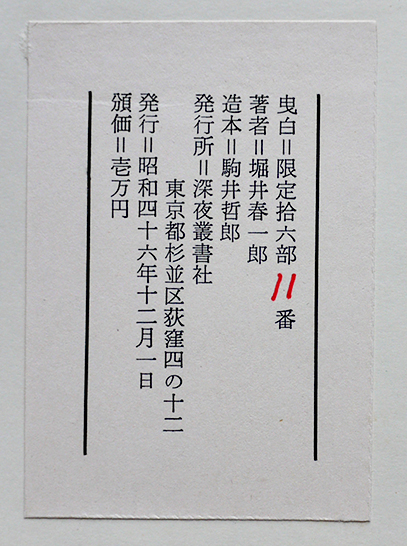 曳白＝限定拾六部 11 番
著者＝堀井春一郎
造本＝駒井哲郎
発行所＝深夜叢書社
東京都杉並区荻窪四の十二
発行＝昭和四十六年十二月一日
頒価＝壱万円